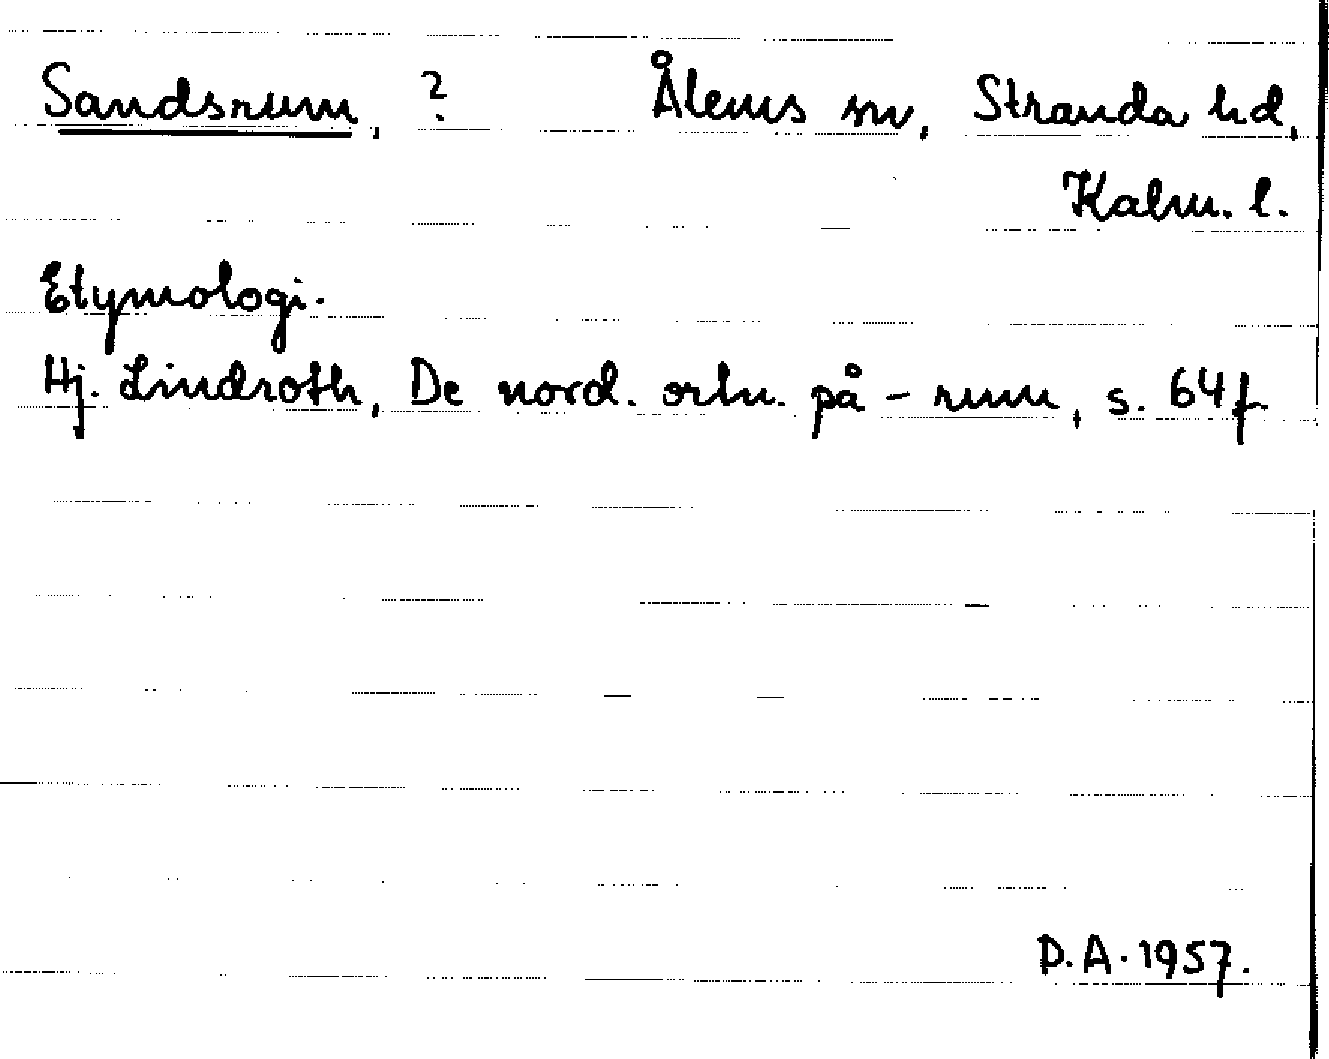 Sandsrum, ? Ålems sn, Stranda hd,
Kalm. l.
Etymologi.
Hj. Lindroth, De nord. ortn. på -rum, s. 64f
D.A. 1957.